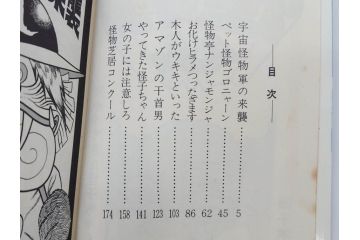 目次
宇宙怪物軍の来襲 5
ペット怪物ゴロニャーン 45
怪物亭ナンジャモンジャ 62
お化けヒラメつつぬきます 86
木人がウキキといった 103
アマゾンの干首男 123
やってきた怪子ちゃん 141
女の子には注意しろ 158
怪物芝居コンクール 174